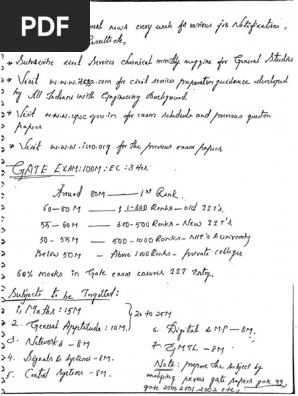 PDF
news every week for various job Notifications,
Results etc,
* Subscribe civil Services chronical monthly magzine for General Studies
* Visit www.itsop.com for civil service preparation guidance developed
by All Indians with Engineering Background
* Visit www.upsc.gov.in for exam schedule and previous question
Papers
* Visit www.iso.org for the previous exam papers
GATE EXAM:100M:EC:3Hrs
Around 80M —— 1st Rank.
60-80M — 1-300 Ranks-old IIT's.
55-60M — 300-500 Ranks-New IIT's
50-55M — 500-1000 Ranks-NIT's & university
Below 50M — Above 1000 Ranks- private colleges
60% marks in Gate exam ensures IIT Entry.
Subjects to be Targitted:
1. Maths:15M
2. General Apptitude:10M.
20 to 25M
3. Networks - 8M
4. Signals & Systems -8M.
5. Control Systems -8M.
6. Digital & MP -8M.
7. EMTL -8M.
Note: prepare the subject by
analysing previous gate papers gate 99,
gate 2000, 2001, 2002 etc..